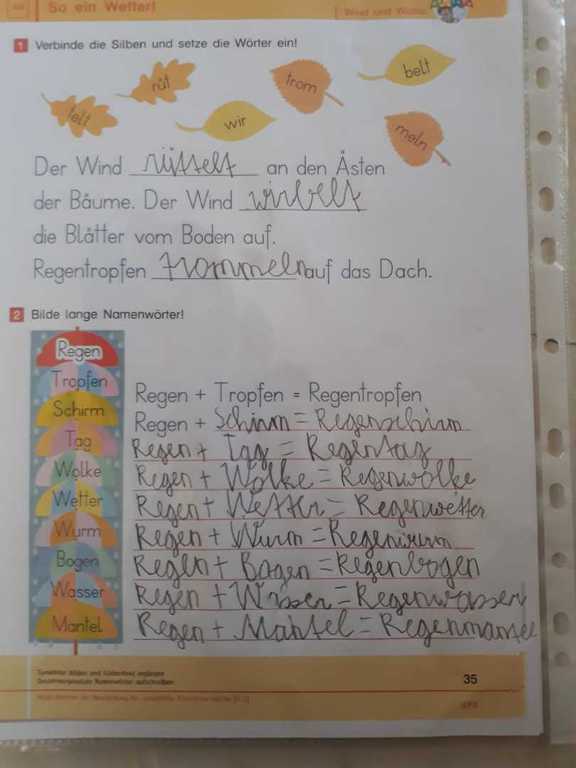 So ein Wetter!
Wind und Wolke
1 Verbinde die Silben und setze die Wörter ein!
telt
rüt
wir
trom
belt
meln
Der Wind rüttelt an den Ästen
der Bäume. Der Wind wirbelt
die Blätter vom Boden auf.
Regentropfen trommeln auf das Dach.
2 Bilde lange Namenwörter!
Regen
Tropfen
Schirm
Tag
Wolke
Wetter
Wurm
Bogen
Wasser
Mantel
Regen + Tropfen = Regentropfen
Regen + Schirm = Regenschirm
Regen + Tag = Regentag
Regen + Wolke = Regenwolke
Regen + Wetter = Regenwetter
Regen + Wurm = Regenwurm
Regen + Bogen = Regenbogen
Regen + Wasser = Regenwasser
Regen + Mantel = Regenmantel
35